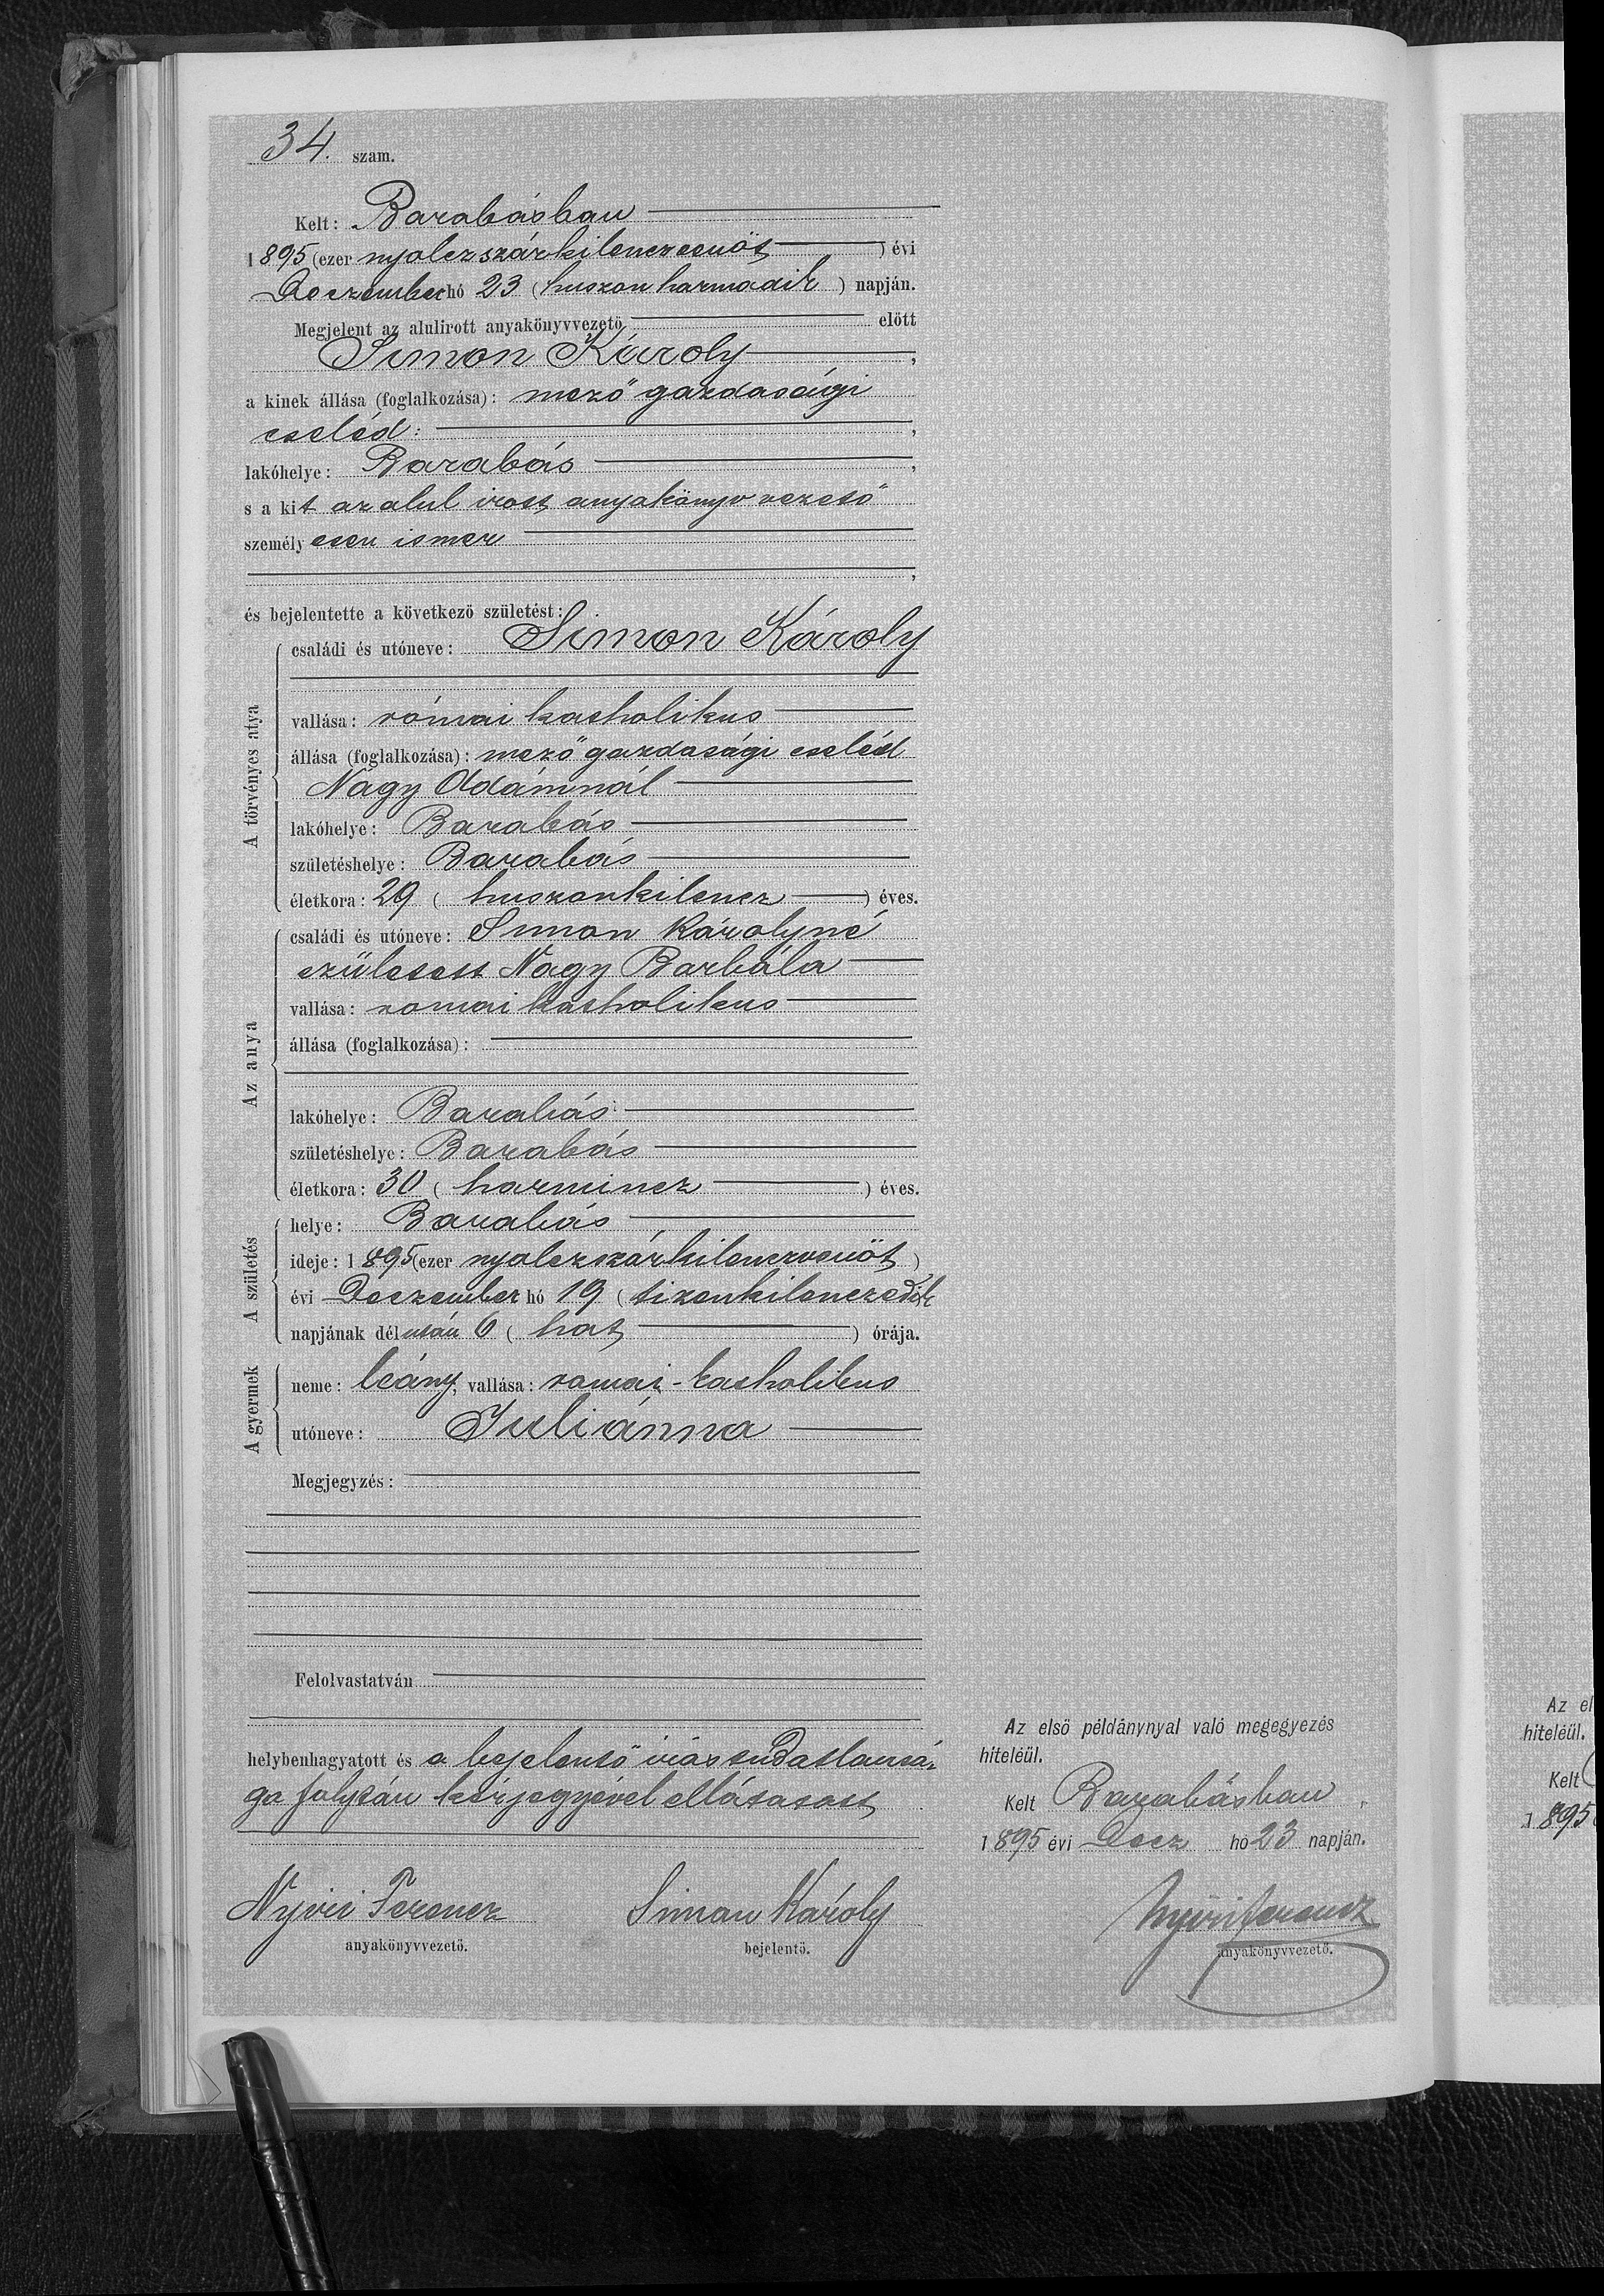 34. szam.
Kelt: Barabásban
1895 (ezer nyolczszázkilenczvenöt) évi
Deczember hó 23 (huszon harmadik) napján.
Megjelent az alulirott anyakönyvvezető előtt
Simon Károly,
a kinek állása (foglalkozása): mező gazdasági
cseléd:,
lakóhelye: Barabás,
s a kit az alul irott anyakönyv vezető
személyesen ismer
,
és bejelentette a következő születést:
A törvényes atya
családi és utóneve: Simon Károly
vallása: római katholikus
állása (foglalkozása): mező gazdasági cseléd
Nagy Ádámnál
lakóhelye: Barabás
születéshelye: Barabás
életkora: 29 (huszonkilencz) éves.
Az anya
családi és utóneve: Simon Károlyné
született Nagy Barbála
vallása: romai katholikus
állása (foglalkozása):
lakóhelye: Barabás
születéshelye: Barabás
életkora: 30 (harmincz) éves.
A születés
helye: Barabás
ideje: 1895 (ezer nyolczszázkilenczvenöt)
évi Deczember hó 19 (tizenkilenczedik
napjának délután 6 (hat) órája.
A gyermek
neme: leány, vallása: romai-katholikus
utóneve: Juliánna
Megjegyzés:
Felolvastatván
helybenhagyatott és a bejelentő irástudatlansá-
ga folytán kézjegyével ellátatott
Nyiri Ferencz
anyakönyvvezető.
Simon Károly
bejelentő.
Az első példánynyal való megegyezés
hiteléül.
Kelt Barabásban
1895 évi Decz hó 23 napján.
Nyiri Ferencz
anyakönyvvezető.
Az el
hiteléül.
Kelt
1895